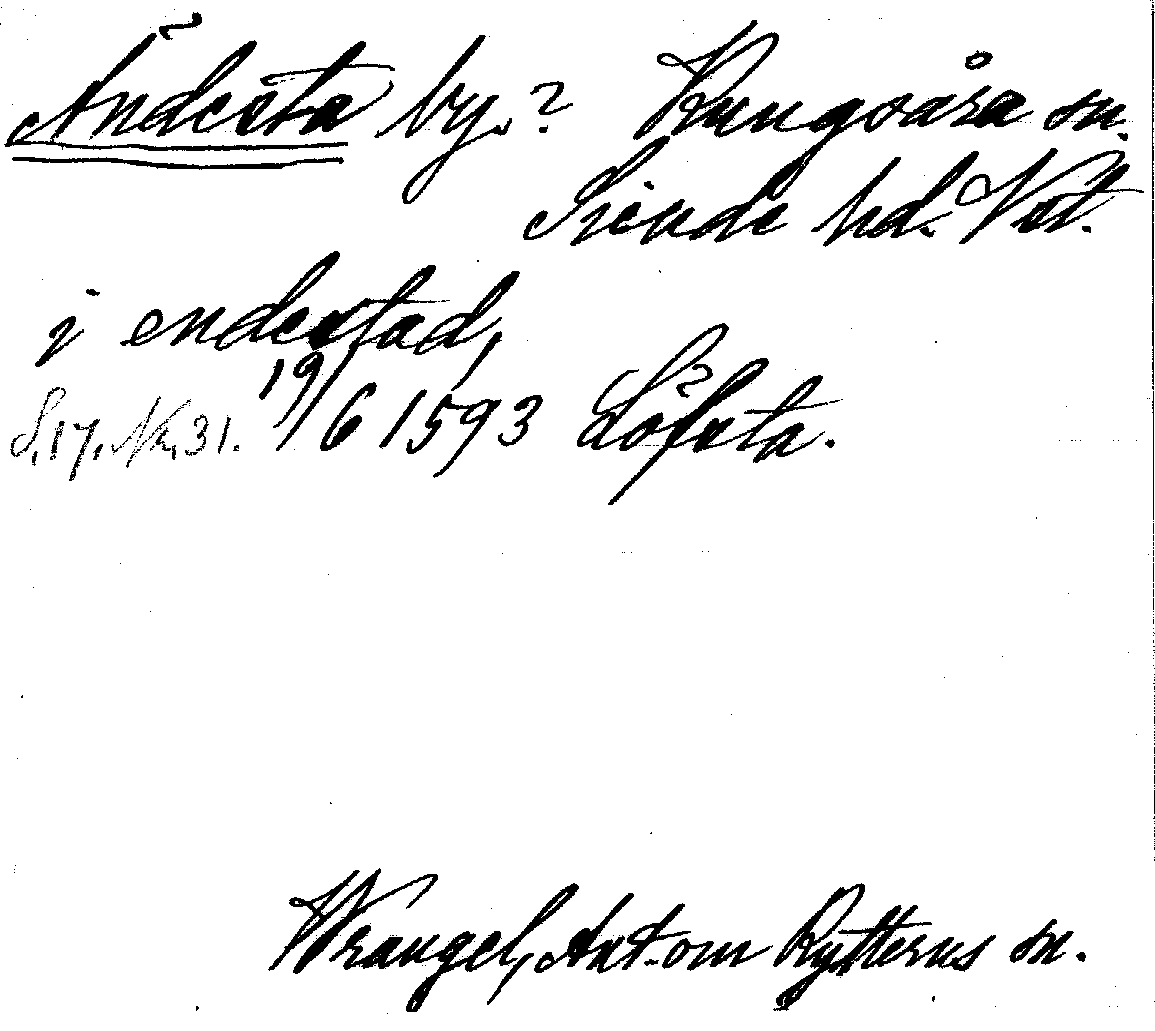 Ändersta by.? Kungsåra sn.
Siende hd. Vstl.
j enderstad,
S. 17, Nr. 31. 19/6 1593 Löfsta.
Wrangel, Ant. om Rytterns sn.